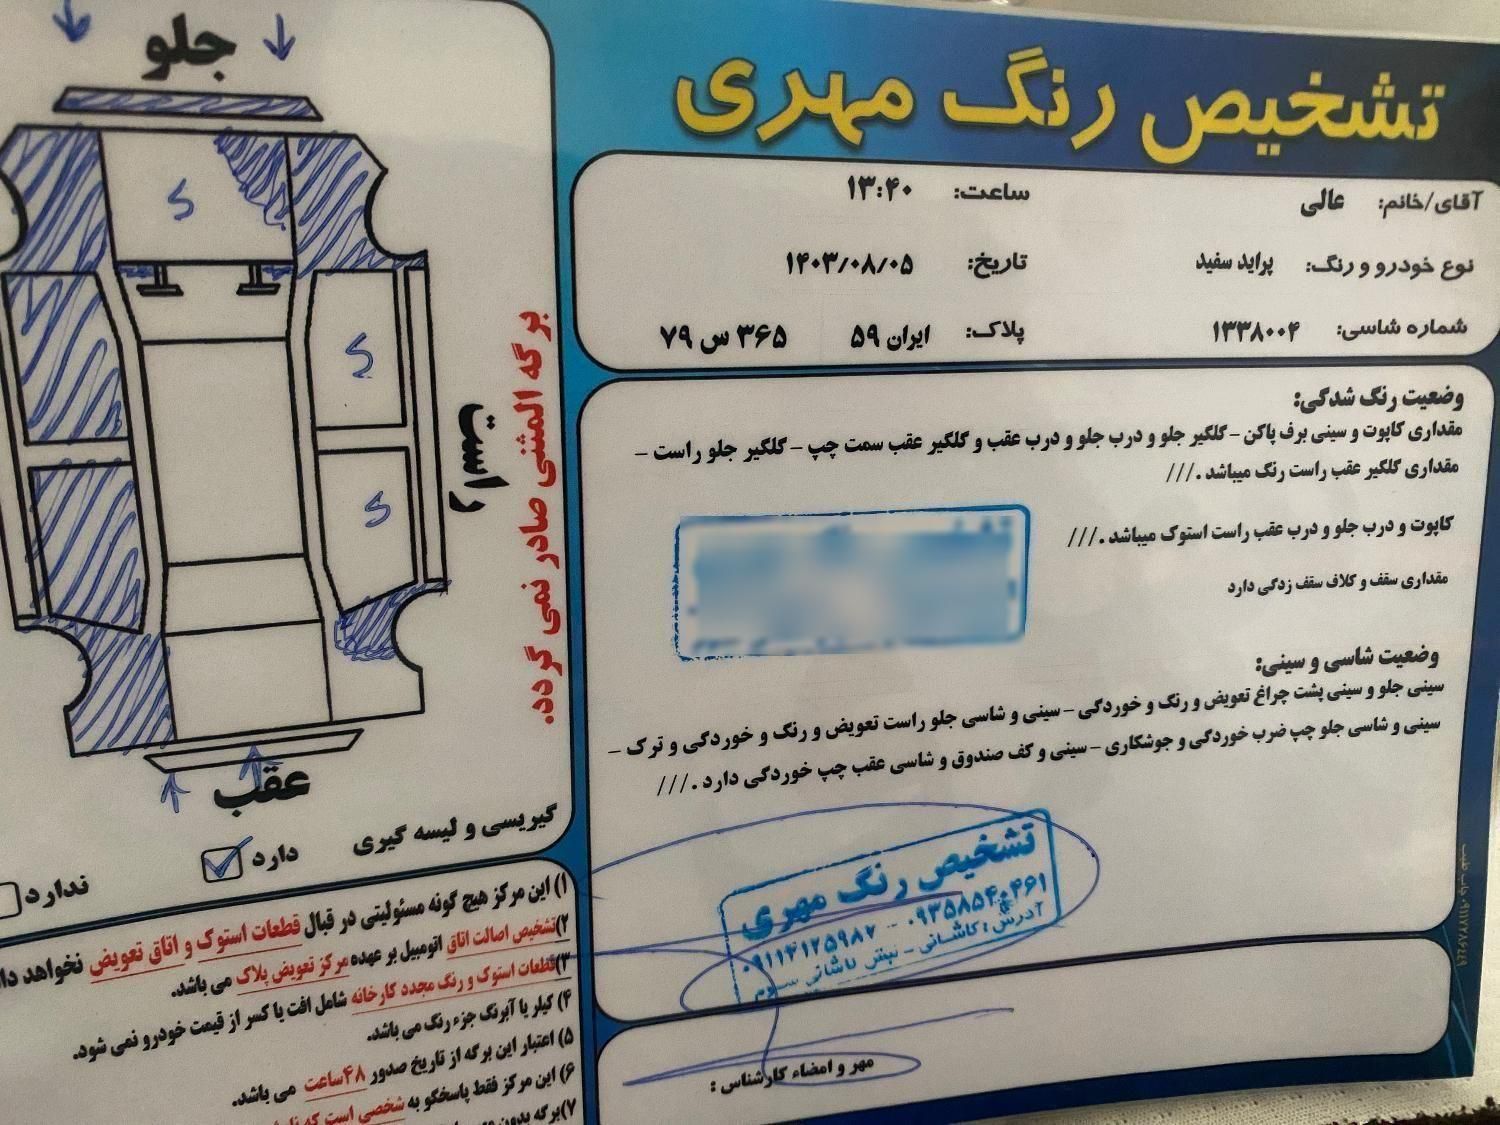 تشخیص رنگ مهری
آقای/خانم: عالی
ساعت: ۱۳:۴۰
نوع خودرو و رنگ: پراید سفید
تاریخ: ۱۴۰۳/۰۸/۰۵
شماره شاسی: ۱۳۳۸۰۰۴
پلاک: ایران ۵۹ ۳۶۵ س ۷۹
وضعیت رنگ شدگی:
مقداری کاپوت و سینی برف پاکن - گلگیر جلو و درب جلو و درب عقب و گلگیر عقب سمت چپ - گلگیر جلو راست -
مقداری گلگیر عقب راست رنگ میباشد .///
کاپوت و درب جلو و درب عقب راست استوک میباشد .///
مقداری سقف و کلاف سقف زدگی دارد
وضعیت شاسی و سینی:
سینی جلو و سینی پشت چراغ تعویض و رنگ و خوردگی - سینی و شاسی جلو راست تعویض و رنگ و خوردگی و ترک -
سینی و شاسی جلو چپ ضرب خوردگی و جوشکاری - سینی و کف صندوق و شاسی عقب چپ خوردگی دارد .///
تشخیص رنگ مهری
۰۹۳۵۸۵۴۰۴۶۱
۰۹۱۱۴۱۲۵۹۸۷
آدرس: کاشانی - نبش کاشانی سوم
مهر و امضاء کارشناس :
جلو
S
S
S
راست
عقب
برگه المثنی صادر نمی گردد.
گیریسی و لیسه گیری
دارد
ندارد
۱) این مرکز هیچ گونه مسئولیتی در قبال قطعات استوک و اتاق تعویض نخواهد
۲)تشخیص اصالت اتاق اتومبیل بر عهده مرکز تعویض پلاک می باشد.
۳)قطعات استوک و رنگ مجدد کارخانه شامل افت یا کسر از قیمت خودرو نمی شود.
۴) کیلر یا آبرنگ جزء رنگ می باشد.
۵) اعتبار این برگه از تاریخ صدور ۴۸ساعت می باشد.
۶) این مرکز فقط پاسخگو به شخصی است که
۷)برگه بدون